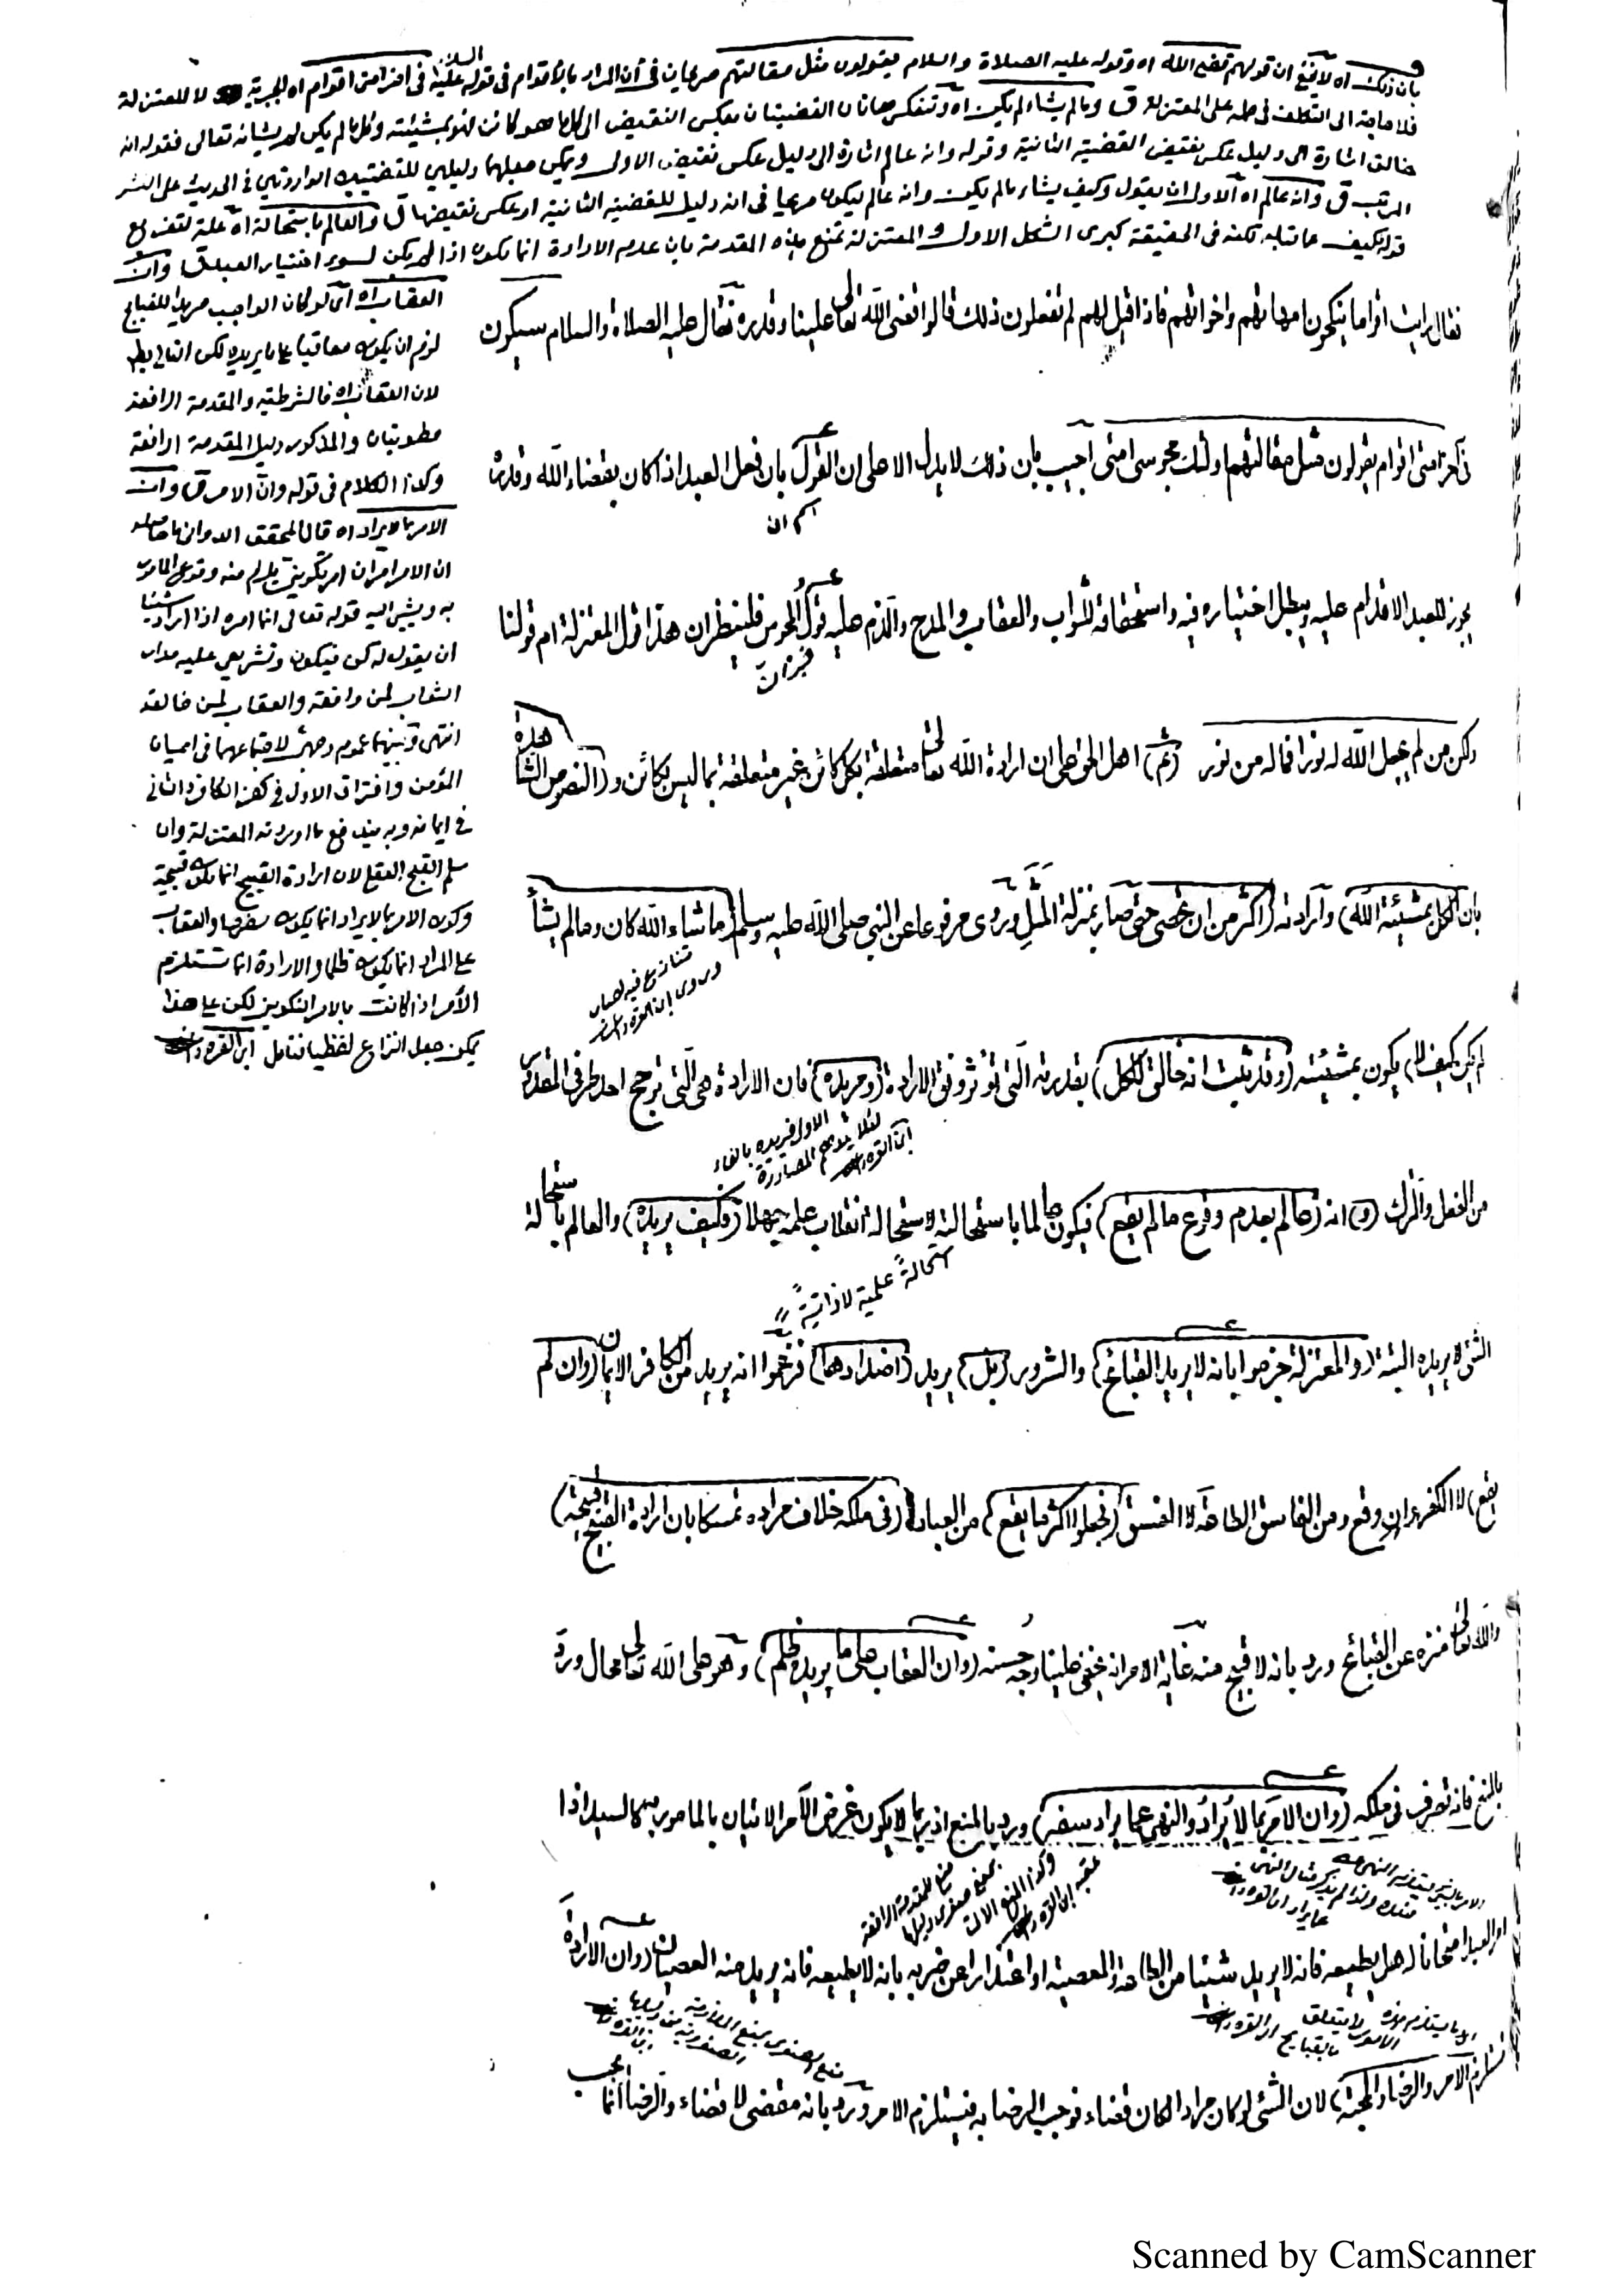 بان ذلك اه لا يخفى ان قولهم قضى الله اه وقوله عليه الصلاة والسلام يقولون مثل مقالتهم صريحان في أن المراد بالأقوام في قوله عليه السلام في اخر امتى اقوام اه الجبرية لا المعتزلة
فلا حاجة الى التكلف في حمله على المعتزلة ق وما لم يشاء لم يكن اه وتنعكس هاتان القضيتان بعكس النقيض الى كل ما هو كائن فهو بمشيئته وكل ما لم يكن لم يشاءه تعالى فقوله انه
خالق اشارة الى دليل عكس نقيض القضية الثانية وقوله وانه عالم اشارة الى دليل عكس نقيض الاولى ويمكن جعلهما دليلين للقضيتين الواردتين في الحديث على النشر
المرتب ق وانه عالم اه الاولى ان يقول وكيف يشاء ما لم يكن وانه عالم ليكون صريحا في انه دليل للقضية الثانية او عكس نقيضها ق والعالم باستحالة اه علة لتفريع
قوله كيف عما قبله لكنه في الحقيقة كبرى الشكل الاول والمعتزلة تمنع هذه المقدمة بان عدم الارادة انما يكون اذا لم يكن لسوء اختيار العبد ق وان
العقاب اه اى لو كان الواجب مريدا للقبايح
لزم ان يكون معاقبا على ما يريده لكن التالى بط
لان العقاب اه فالشرطية والمقدمة الرافعة
مطويتان والمذكور دليل المقدمة الرافعة
وكذا الكلام في قوله وان الامر ق وان
الامر بما لا يراد اه قال المحقق الدوانى ما حاصله
ان الامر امران امر تكوينى يلزم منه وقوع المامور
به ويشير اليه قوله تعالى انما امره اذا اراد شيئا
ان يقول له كن فيكون وتشريعى عليه مدار
الثواب لمن وافقه والعقاب لمن خالفه
انتهى وبينهما عموم وجهى لاجتماعهما في ايمان
المؤمن وافتراق الاول في كفر الكافر والثانى
في ايمانه وبه يندفع ما اوردته المعتزلة وان
سلم القبح العقلى لان ارادة القبيح انما يكون قبيحة
وكون الامر بما لا يراد انما يكون سفها والعقاب
على المراد انما يكون ظلما والارادة انما تستلزم
الأمر اذا كانت بالامر التكوينى لكن على هذا
يمكن جعل النزاع لفظيا فتامل ابن القره داغى
فقال رايت اقواما ينكحون امهاتهم واخواتهم فاذا قيل لهم لم تفعلون ذلك قالوا قضى الله تعالى علينا وقدره فقال عليه الصلاة والسلام سيكون
في آخر امتى اقوام يقولون مثل مقالتهم اولئك مجوسى امتى اجيب بان ذلك لا يدل الا على ان القول بان فعل العبد اذا كان بقضاء الله وقدره
اسم ان
يجوز للعبد الاقدام عليه ويبطل اختياره فيه واستحقاقه للثواب والعقاب والمدح والذم عليه قول المجوس فلينظر ان هذا قول المعتزلة ام قولنا
خبر ان
ولكن من لم يجعل الله له نورا فما له من نور (ثم) اهل الحق على ان ارادة الله تعالى متعلقة بكل كائن غير متعلقة بما ليس بكائن و(النصوص الشاهدة
بان الكل بمشيئة الله) وارادته (اكثر من ان تحصى حتى صار بمنزلة المثل وروى مرفوعا عن النبى صلى الله عليه وسلم (ما شاء الله كان وما لم يشأ
تنازع فيه لصار
وروى ابن القره داغى
لم يكن كيف لا) يكون بمشيئته (وقد ثبت انه خالق للكل) بقدرته التى تؤثر وفق الارادة (ومريده) فان الارادة هى التى ترجح احد طرفى المقدور
الاولى فمريده بالفاء
لئلا يتوهم المصادرة
ابن القره داغى
من الفعل والترك (و) انه (عالم بعدم وقوع ما لم يقع) فيكون عالما باستحالته لاستحالة انقلاب علمه جهلا (وكيف يريده) والعالم باستحالة
استحالة علمية لا ذاتية
الشئ لا يريده البتة (والمعتزلة جزموا بانه لا يريد القبائح) والشرور (بل) يريد (اضدادهما) فزعموا انه يريد من الكافر الايمان (وان لم
يقع) لا الكفر وان وقع ومن الفاسق الطاعة لا الفسق (فجعلوا اكثر ما يقع) من العباد (في ملكه خلاف مراده تمسكا بان ارادة القبيح قبيحة)
والله تعالى منزه عن القبائح ورد بانه لا قبيح منه غاية الامر انه يخفى علينا وجه حسنه (وان العقاب على ما يريده ظلم) وهو على الله تعالى محال ورد
بالمنع فانه تصرف في ملكه (وان الامر بما لا يراد والنهى عما يراد سفه) ورد بالمنع اذ ربما لا يكون غرض الآمر الاتيان بالمامور به كالسيد اذا
منع للمقدمة الرافعة
بمنع صغرى دليلها
وكذا المنع الآتى
امر العبد امتحانا له هل يطيعه فانه لا يريد شيئا من الطاعة والمعصية او اعتذارا عن ضربه بانه لا يطيعه فانه يريد منه العصيان (وان الارادة
تستلزم الامر والرضا والمحبة) لان الشئ لو كان مرادا لكان قضاء فوجب الرضا به فيستلزم الامر ورد بانه مقضى لا قضاء والرضا انما يجب
Scanned by CamScanner